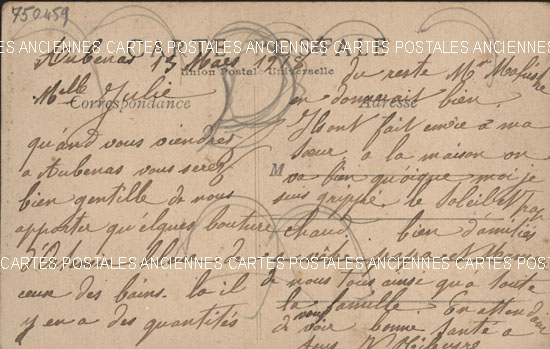 750459
CARTE POSTALE
CARTES POSTALES ANCIENNES CARTES POSTALES ANCIENNES CARTES POSTALES ANCIENNES
Union Postale Universelle
Correspondance
Adresse
M
Aubenas 13 Mars 1918
Melle Julie
qu'and vous viendrez
a Aubenas vous serez
bien gentille de nous
apporter qu'elques bouture
ceux des bains. la il
y en a des quantités
du reste Mr
en donnerait bien.
Ils ont fait envie a ma
sœur a la maison on
va bien qu'oique moi je
suis grippé. le Soleil est pas
chaud. bien d'amitiés
CARTES POSTALES ANCIENNES CARTES POSTALES ANCIENNES CARTES POSTALES ANCIENNES
de nous tous ainsi qu'a toute
la famille. En attendant
de vous voir bonne santé a
tous